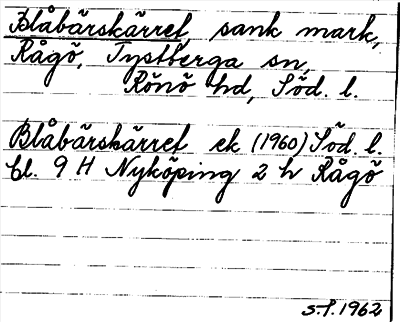 Blåbärskärret, sank mark,
Rågö, Tystberga sn,
Rönö hd, Söd. l.
Blåbärskärret ek (1960) Söd. l.
bl. 9 H Nyköping 2 h Rågö
s.P. 1962